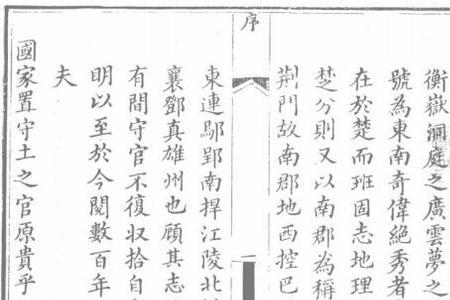 衡嶽洞庭之廣雲夢之
號為東南奇偉絕秀者
在於楚而班固志地理
楚分則又以南郡為稱
荆門故南郡地西控巴
序
一
東連鄢郢南捍江陵北
襄鄧真雄州也顧其志
有間守官不復収拾自
明以至於今閱數百年
夫
國家置守土之官原貴乎